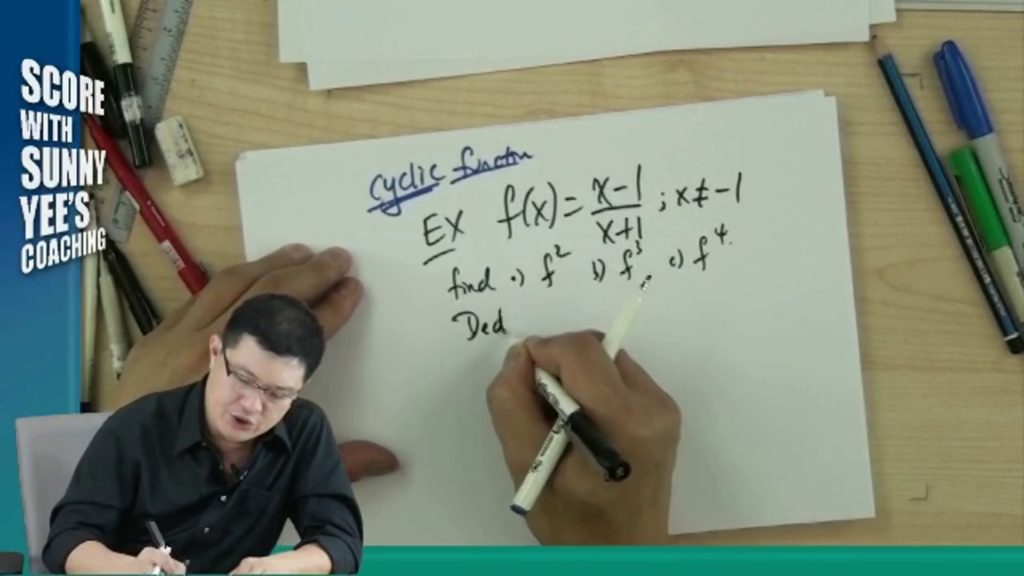 SCORE
WITH
SUNNY
YEE'S
COACHING
cyclic function
EX f(x) = x-1/x+1 ; x ≠ -1
find a) f² b) f³, c) f⁴.
Ded